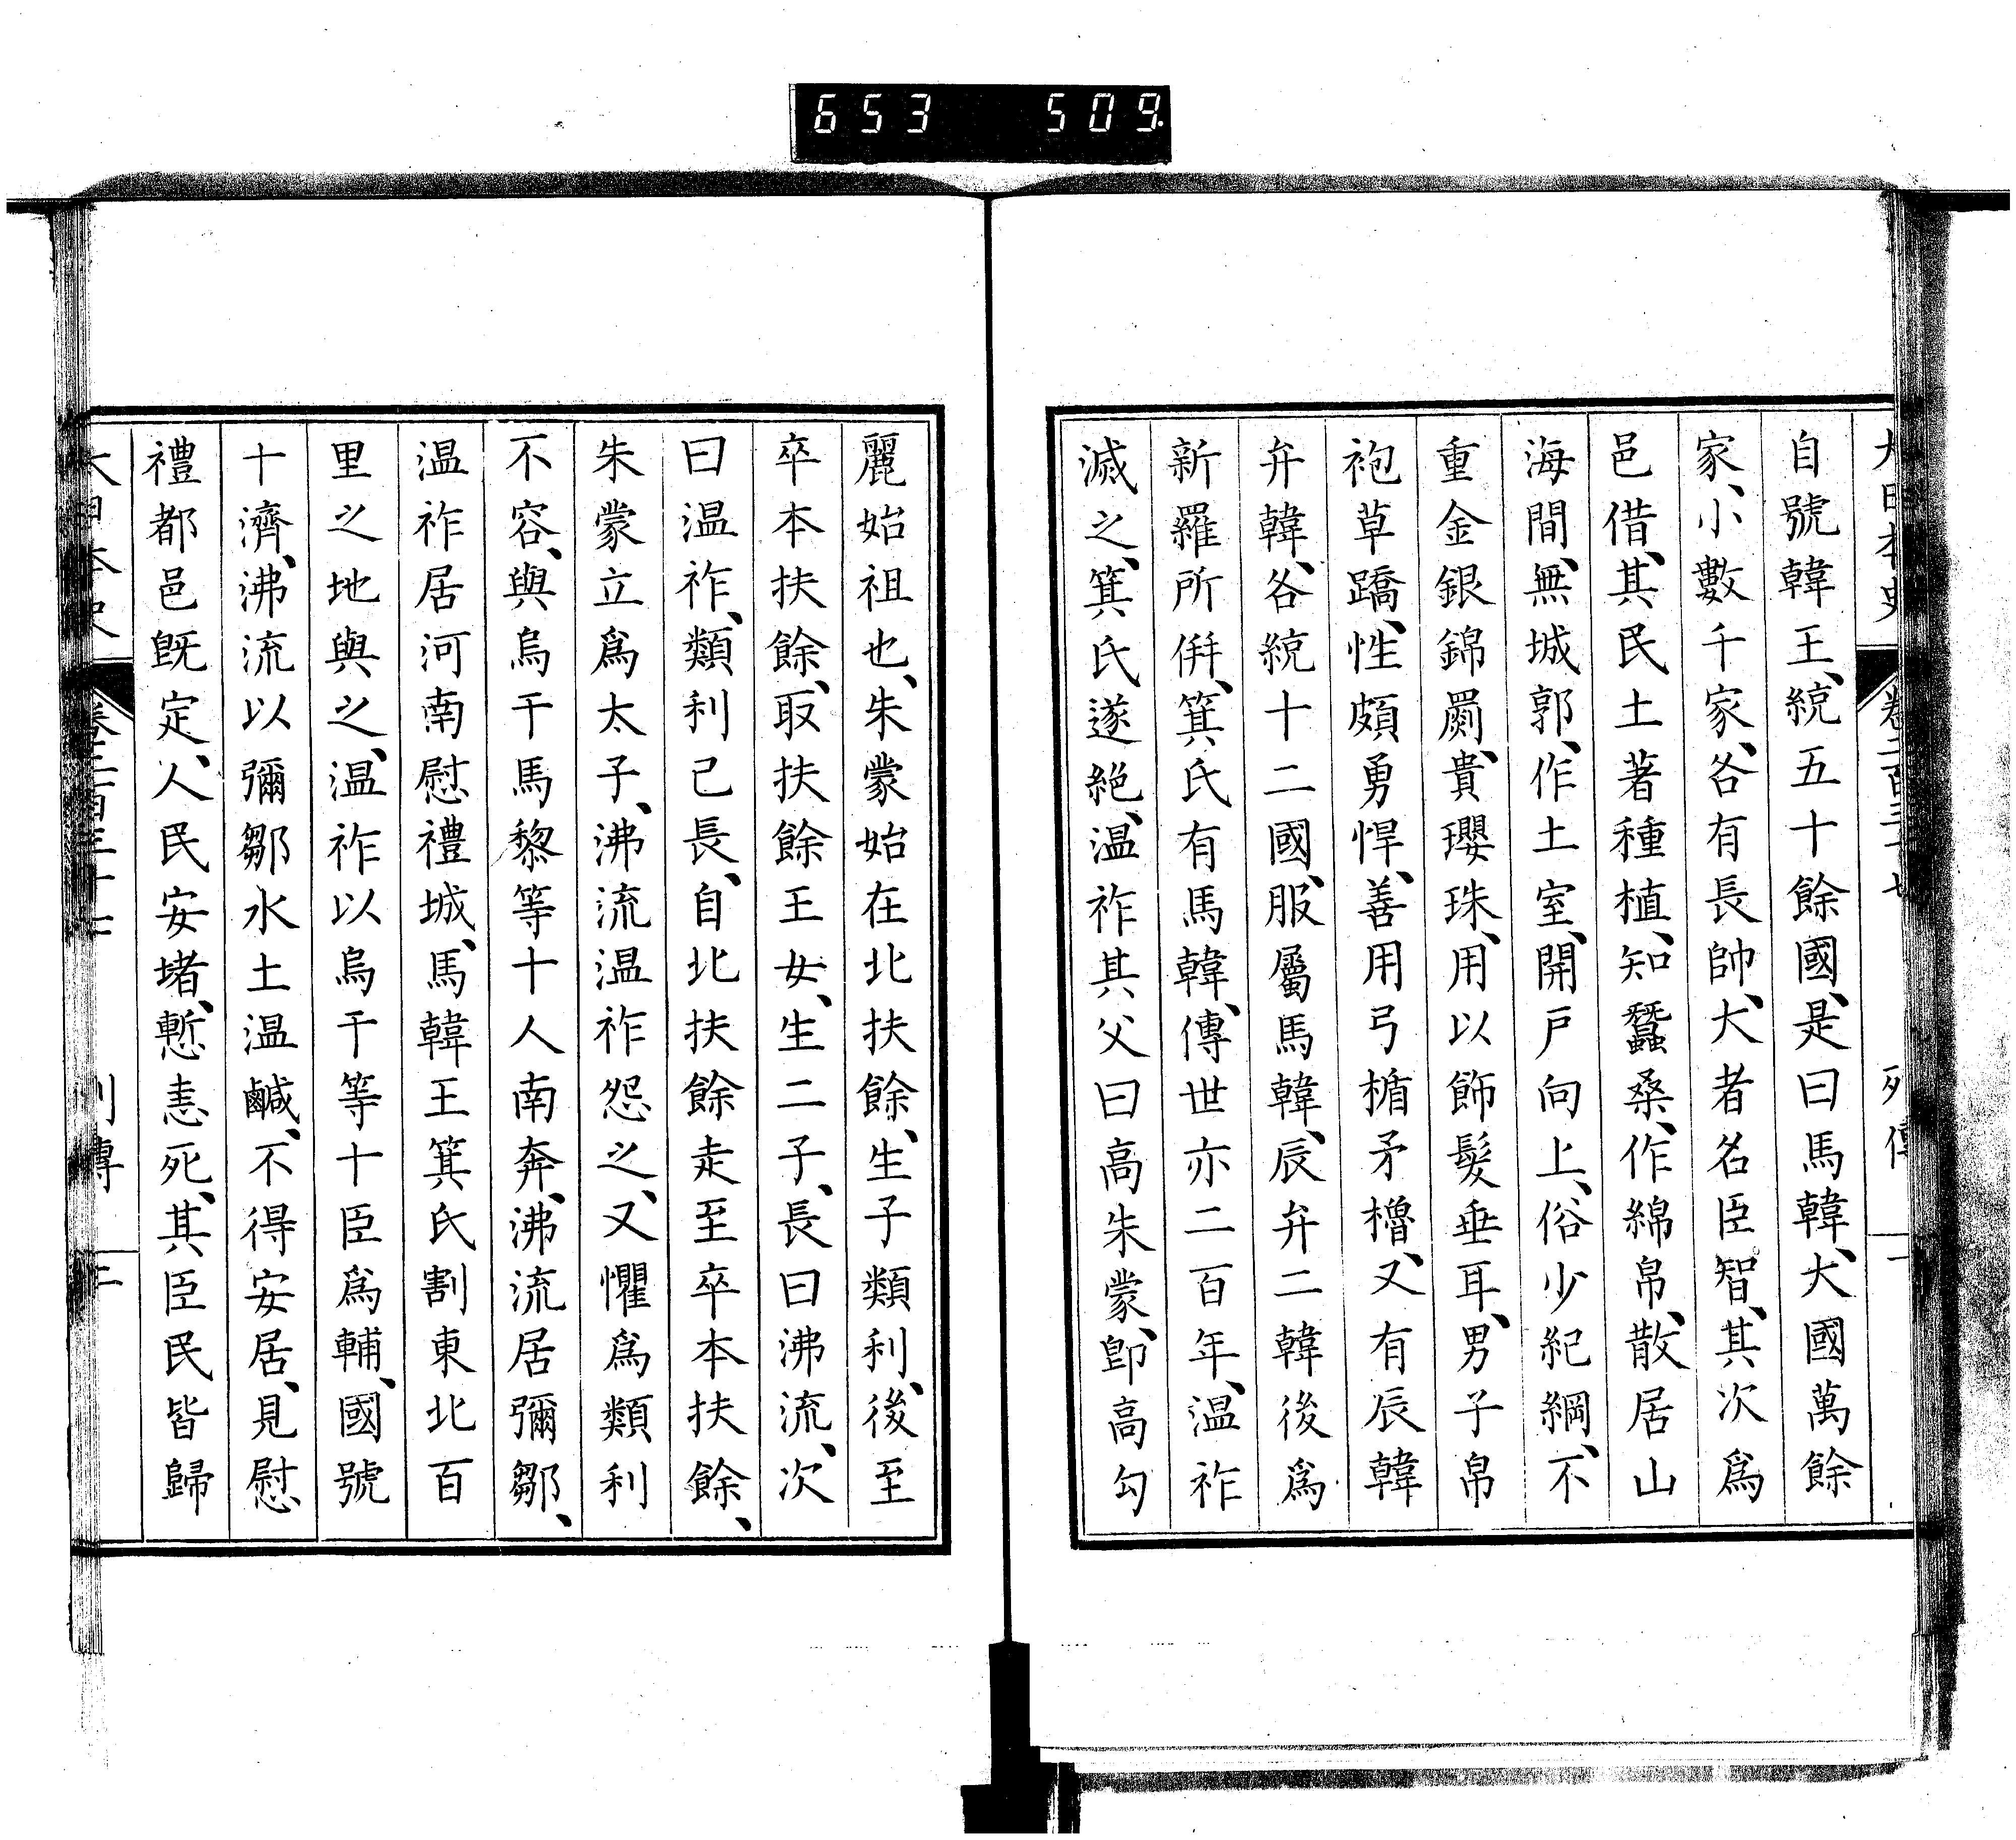 653 509
大日本史 卷二百三十七 列傳 二
自號韓王、統五十餘國、是曰馬韓、大國萬餘
家、小數千家、各有長帥、大者名臣智、其次爲
邑借、其民土著種植、知蠶桑、作綿帛、散居山
海間、無城郭、作土室、開戸向上、俗少紀綱、不
重金銀錦罽、貴瓔珠、用以飾髮垂耳、男子帛
袍草蹻、性頗勇悍、善用弓楯矛櫓、又有辰韓
弁韓、各統十二國、服屬馬韓、辰弁二韓後爲
新羅所併、箕氏有馬韓、傳世亦二百年、温祚
滅之、箕氏遂絕、温祚其父曰高朱蒙、卽高勾
麗始祖也、朱蒙始在北扶餘、生子類利、後至
卒本扶餘、取扶餘王女、生二子、長曰沸流、次
曰温祚、類利已長、自北扶餘走至卒本扶餘、
朱蒙立爲太子、沸流温祚怨之、又懼爲類利
不容、與烏干馬黎等十人南奔、沸流居彌鄒、
温祚居河南慰禮城、馬韓王箕氏割東北百
里之地與之、温祚以烏干等十臣爲輔、國號
十濟、沸流以彌鄒水土温鹹、不得安居、見慰
禮都邑既定、人民安堵、慙恚死、其臣民皆歸
大日本史 卷二百三十七 列傳 三